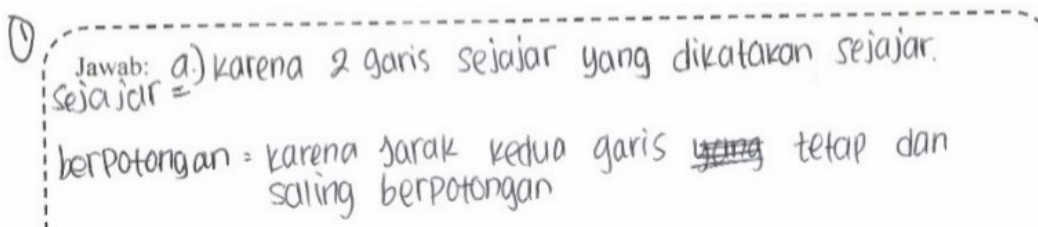 ①
Jawab: a.) karena 2 garis sejajar yang dikatakan sejajar.
sejajar =
berpotongan = karena jarak kedua garis yang tetap dan
saling berpotongan